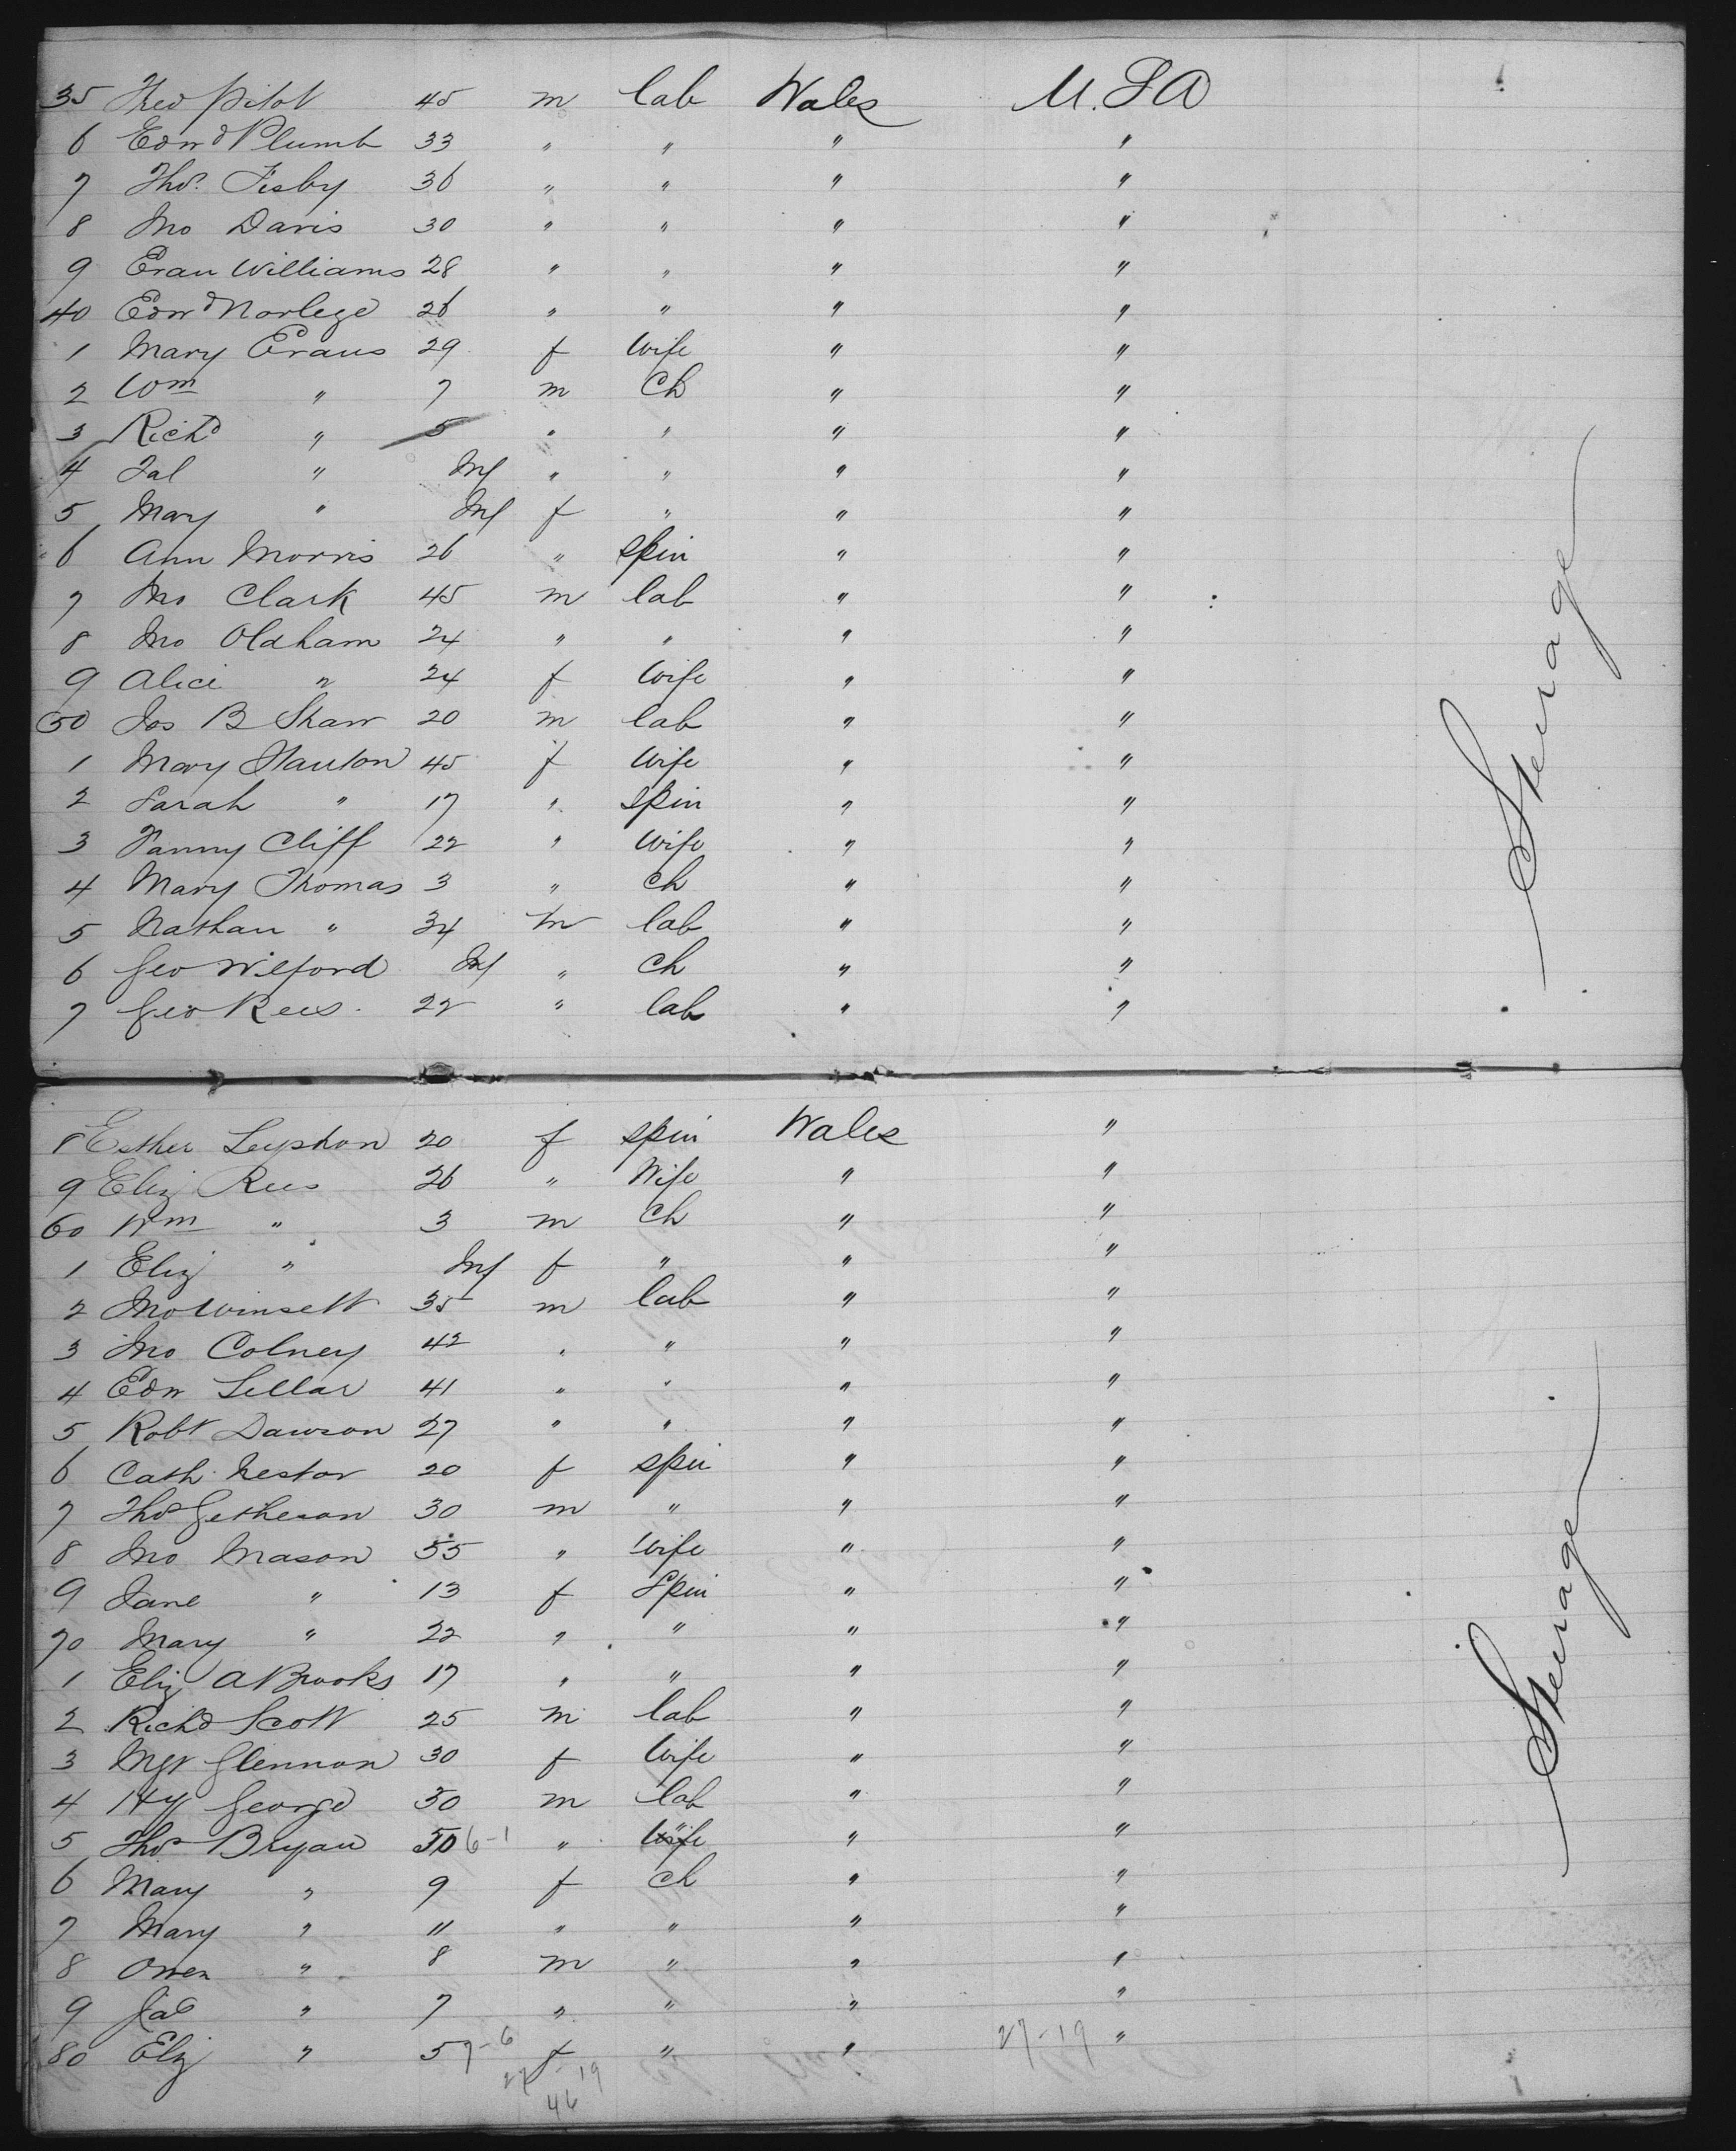 35 Theo Pitot 45 m lab Wales U.S.A
6 Edwd Plumb 33 " " " "
7 Thos. Fisby 36 " " " "
8 Jno Davis 30 " " " "
9 Evan Williams 28 " " " "
40 Edwd Norlege 26 " " " "
1 Mary Evans 29 f Wife " "
2 Wm " 7 m Ch " "
3 Richd " 5 " " " "
4 Tal " Inf " " " "
5 Mary " Inf f " " "
6 Ann Morris 26 " Spin " "
7 Jno Clark 45 m lab " "
8 Jno Oldham 24 " " " "
9 Alice " 24 f Wife " "
50 Jos B Shaw 20 m lab " "
1 Mary Stanton 45 f Wife " "
2 Sarah " 17 " Spin " "
3 Fanny Cliff 22 " Wife " "
4 Mary Thomas 3 " Ch " "
5 Nathan " 34 m lab " "
6 Geo Wilford Inf " Ch " "
7 Geo Rees 22 " lab " "
Steerage
8 Esther Leyshon 20 f spin Wales "
9 Eliz Rees 26 " Wife " "
60 Wm " 3 m Ch " "
1 Eliz " Inf f " " "
2 Jno Winsett 35 m lab " "
3 Jno Colney 42 " " " "
4 Edw Sellar 41 " " " "
5 Robt Dawson 27 " " " "
6 Cath Nestor 20 f spin " "
7 Thos Getheson 30 m " " "
8 Jno Mason 55 " Wife " "
9 Jane " 13 f Spin " "
70 Mary " 22 " " " "
1 Eliz A Brooks 17 " " " "
2 Richd Scott 25 m lab " "
3 Mgt Glennon 30 f Wife " "
4 Hy George 30 m lab " "
5 Thos Bryan 50 6-1 " Wife " "
6 Mary " 9 f ch " "
7 Mary " 11 " " " "
8 Owen " 8 m " " "
9 Jas " 7 " " " "
80 Eliz " 5 7-6 f " " 27-19 "
27-19
46
Steerage